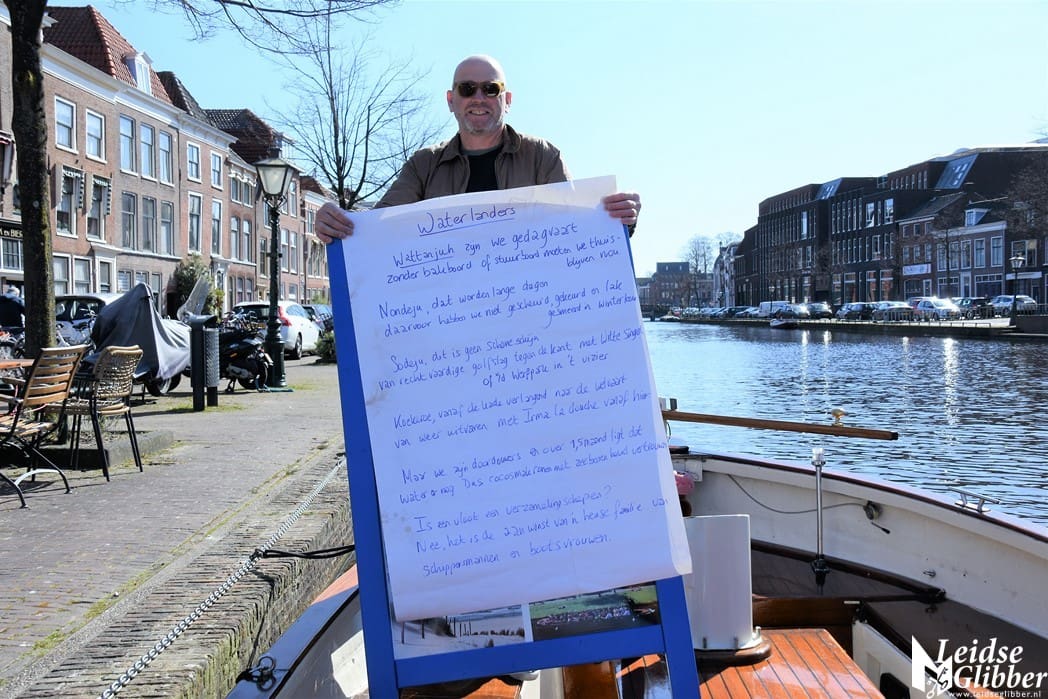 Waterlanders
Wattanjuh zyn we gedagvaart
zonder bakboord of stuurboord moeten we thuis-
blijven nou
Nondeju, dat worden lange dagen
daarvoor hebben we niet geschuurd, gekeurd en lak
gesmeerd in winterkou
Sodeju, dit is geen schone schijn
van rechtvaardige golfslag tegen de kant met Witte Singel
of 'd Werfpark in 't vizier
Koekoe, vanaf de kade verlangend naar de uitvaart
van weer uitvaren met Irma la douche vanaf hier
Maar we zijn doordouwers en over 1,5m zand ligt dat
water er nog. Das cocosmakronen met zeebonenhoud vertrouwen
Is een vloot een verzameling schepen?
Nee, het is de aanwinst van 'n heuse familie van
schippersmannen en bootsvrouwen.
Leidse
Glibber
www.leidseglibber.nl